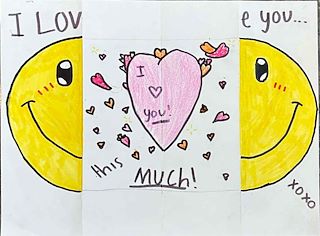 I LOV e you...
I
♡
you!
this
MUCH!
xoxo